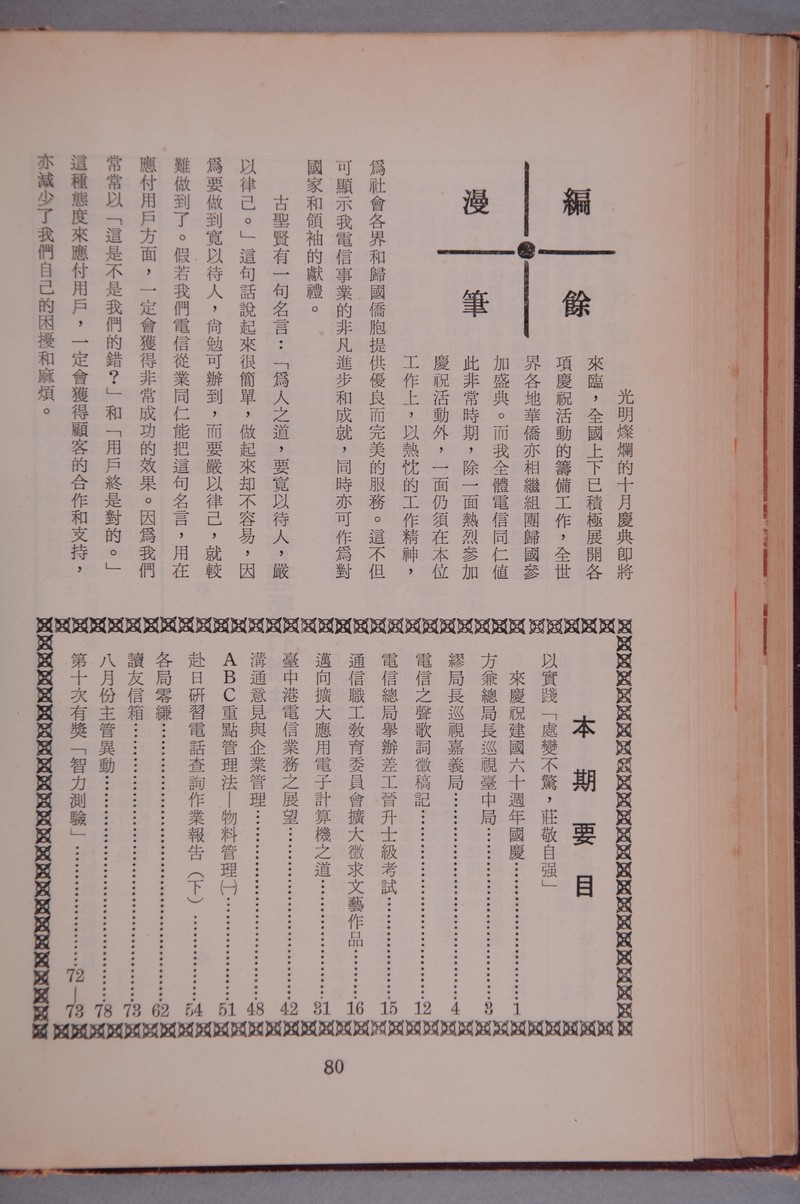 編餘
漫筆
光明燦爛的十月慶典卽將
來臨，全國上下已積極展開各
項慶祝活動的籌備工作，全世
界各地華僑亦相繼組團歸國參
加盛典。而我全體電信同仁値
此非常時期，除一面熱烈參加
慶祝活動外，一面仍須在本位
工作上，以熱忱的工作精神，
爲社會各界和歸國僑胞提供優良而完美的服務。這不但
可顯示我電信事業的非凡進步和成就，同時亦可作爲對
國家和領袖的獻禮。
古聖賢有一句名言：「爲人之道，要寬以待人，嚴
以律己。」這句話說起來很簡單，做起來却不容易，因
爲要做到寬以待人，尙勉可辦到，而要嚴以律己，就較
難做到了。假若我們電信從業同仁能把這句名言，用在
應付用戶方面，一定會獲得非常成功的效果。因爲我們
常常以「這是不是我們的錯？」和「用戶終是對的。」
這種態度來應付用戶，一定會獲得顧客的合作和支持，
亦減少了我們自己的困擾和麻煩。
本期要目
以實踐「處變不驚，莊敬自强」
來慶祝建國六十週年國慶………………1
方兼總局長巡視臺中局………………3
繆局長巡視嘉義局………………4
電信之聲歌詞徵稿記………………12
電信總局舉辦差工晉升士級考試………15
通信職工敎育委員會擴大徵求文藝作品……16
邁向擴大應用電子計算機之道…………31
臺中港電信業務之展望………………42
溝通意見與企業管理………………48
ABC重點管理法—物料管理㈠…………51
赴日硏習電話查詢作業報告（下）………54
各局零縑………………62
讀友信箱………………73
八月份主管異動………………78
第十次有獎「智力測驗」…………72—73
80